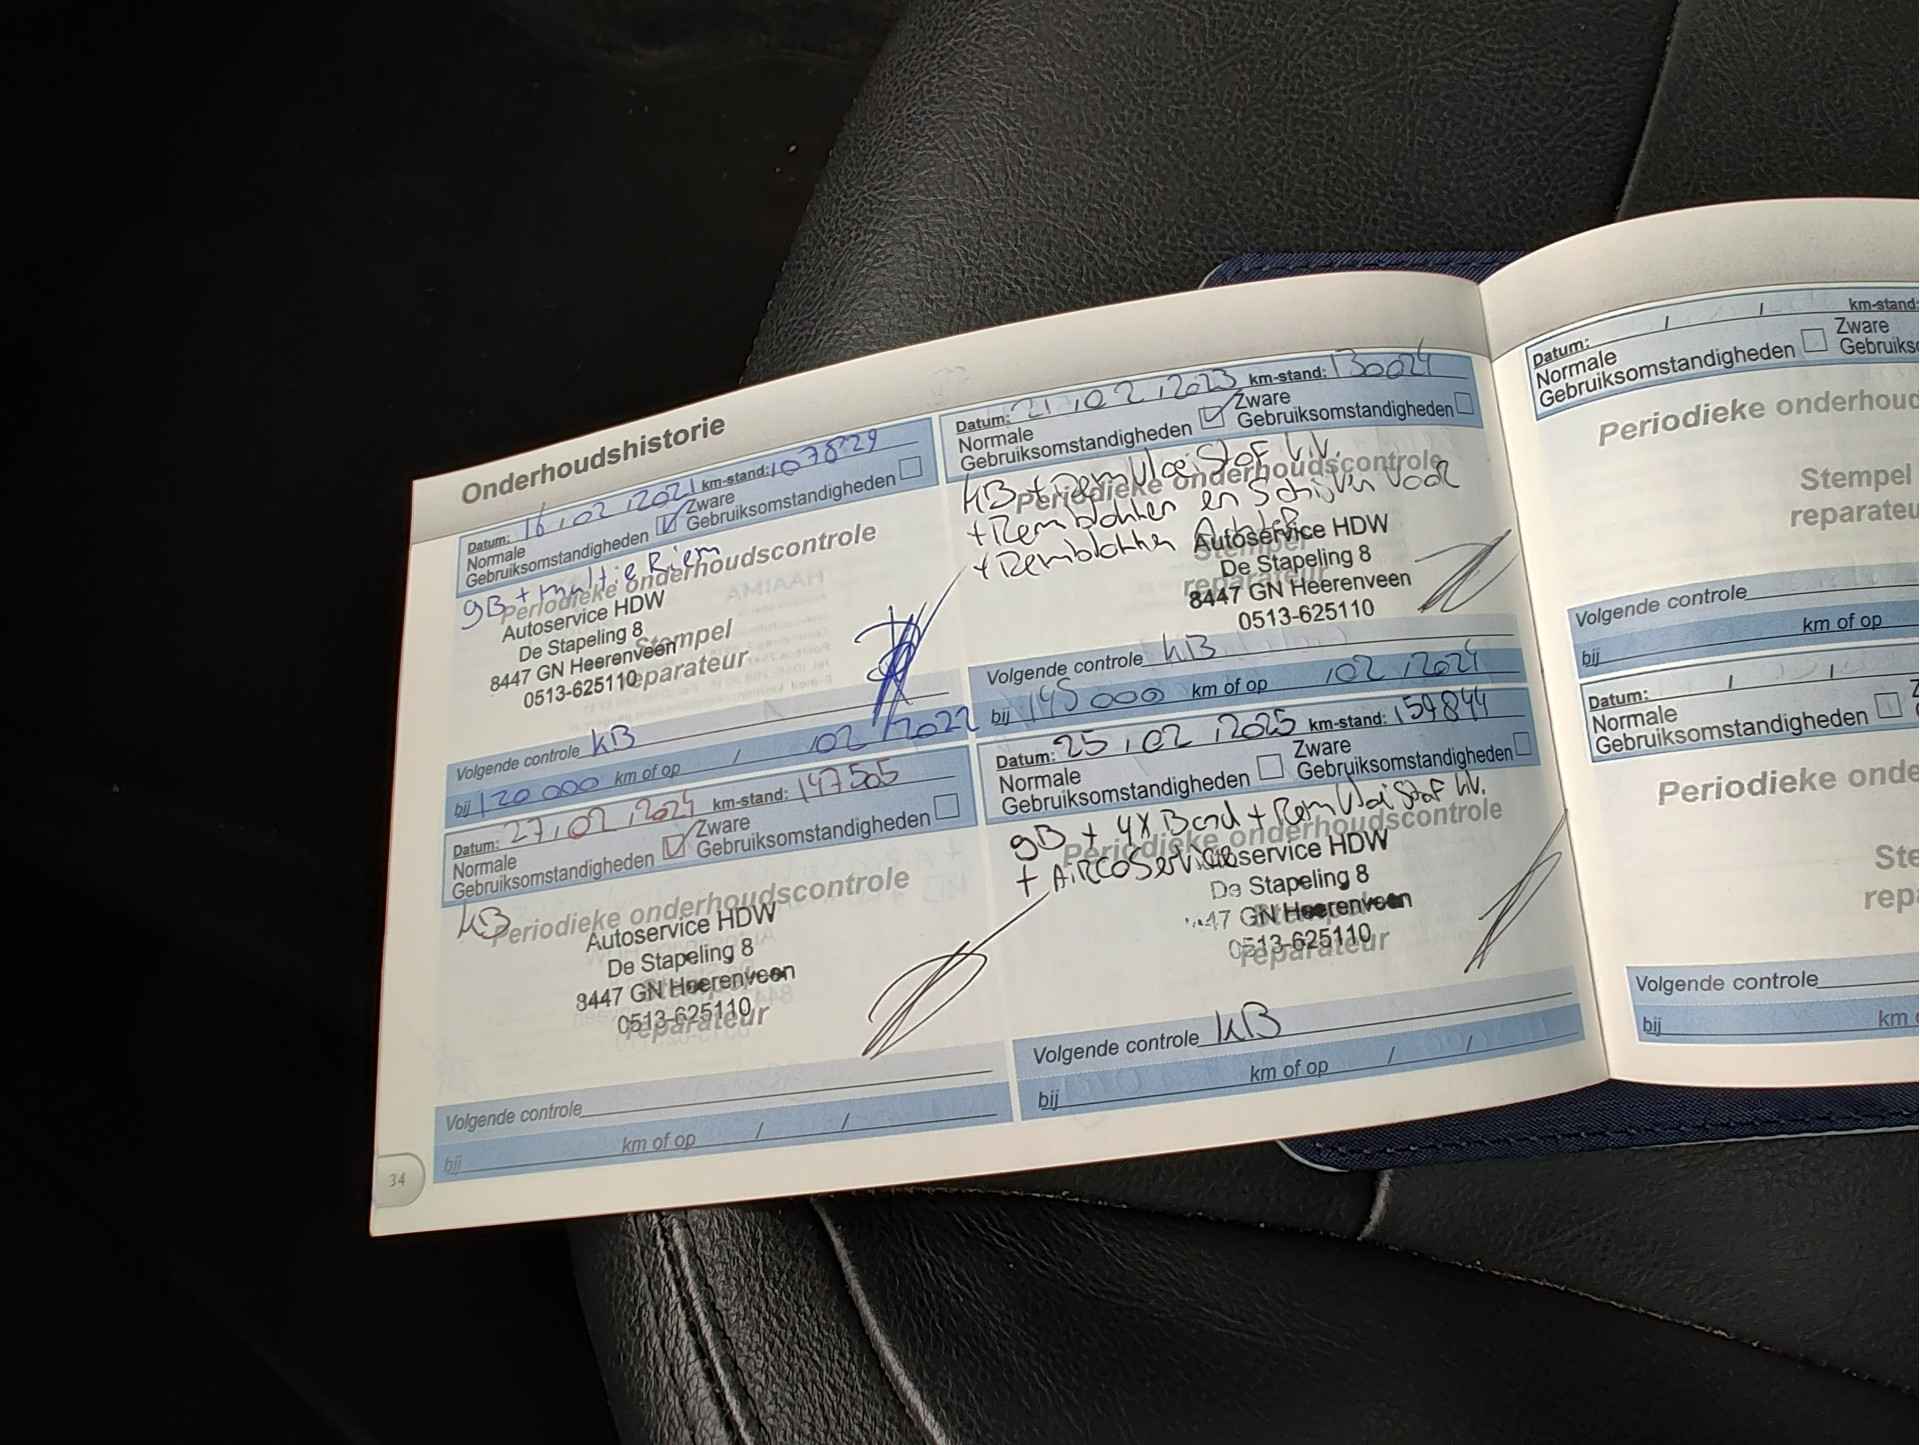 Onderhoudshistorie
Datum: 16 / 02 / 2021 km-stand: 107829
Normale Gebruiksomstandigheden
Zware Gebruiksomstandigheden
gB + multie Riem
Periodieke onderhoudscontrole
Autoservice HDW
De Stapeling 8
Stempel
8447 GN Heerenveen
reparateur
0513-625110
Volgende controle kB
bij 120 000 km of op / 02 / 2022
Datum: 27 / 02 / 2024 km-stand: 147505
Normale Gebruiksomstandigheden
Zware Gebruiksomstandigheden
kB
Periodieke onderhoudscontrole
Autoservice HDW
De Stapeling 8
8447 GN Heerenveen
0513-625110
reparateur
Volgende controle
bij km of op / /
34
Datum: 21 / 02 / 2023 km-stand: 130024
Normale Gebruiksomstandigheden
Zware Gebruiksomstandigheden
kB + Remvloeistof V.V.
Periodieke onderhoudscontrole
+ Remblokken en Schijven Voor
+ Remblokken Achter
Autoservice HDW
Stempel
De Stapeling 8
reparateur
8447 GN Heerenveen
0513-625110
Volgende controle kB
bij 145 000 km of op / 02 / 2024
Datum: 25 / 02 / 2025 km-stand: 159844
Normale Gebruiksomstandigheden
Zware Gebruiksomstandigheden
gB + 4x Band + Remvloeistof V.V.
Periodieke onderhoudscontrole
+ AircoService
Autoservice HDW
De Stapeling 8
47 GN Heerenveen
0513-625110
reparateur
Volgende controle kB
bij km of op / /
Datum: / / km-stand:
Normale Gebruiksomstandigheden
Zware
Periodieke
Stempel
Volgende controle
bij km of op
Datum: / /
Normale Gebruiksomstandigheden
Periodieke
Volgende controle
bij km